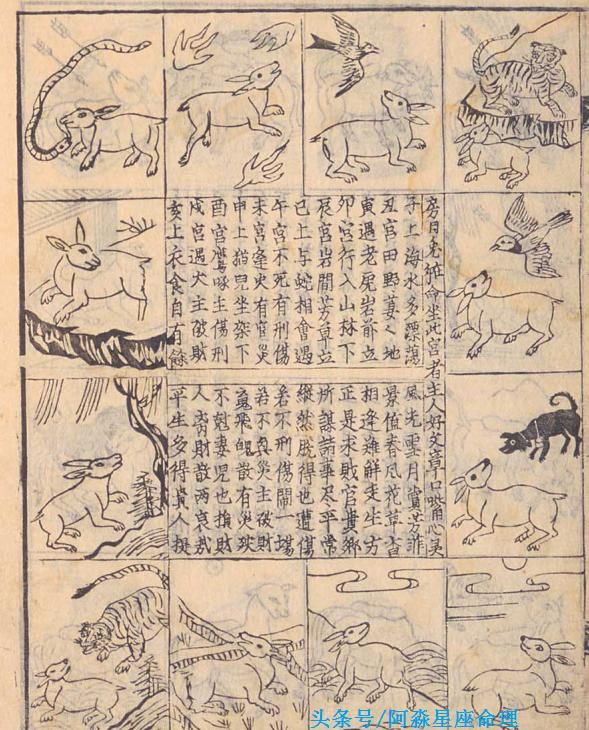 房日兔命坐此宮者主人好文章口嘴心美
子上海水多漂蕩
風光雪月賞芳菲
丑宮田野萋々地
景值春風花草香
寅遇老虎岩前立
相逢難解坐方
卯宮行入山林下
正是求財官貴鄉
辰宮岩間芳草立
所謀諸事尽平常
巳土与蛇相會遇
縱然脫得也遭傷
午宮不死有刑傷
若不刑傷鬧一場
未宮逢火有官災
若不真災主破財
申上猫兒坐架下
魂飛魄散有災殃
酉宮鷹啄主傷刑
不尅妻児也損財
戌宮遇犬主破財
人离財散兩哀哉
亥上衣食自有餘
平生多得貴人提
头条号/阿淼星座命理